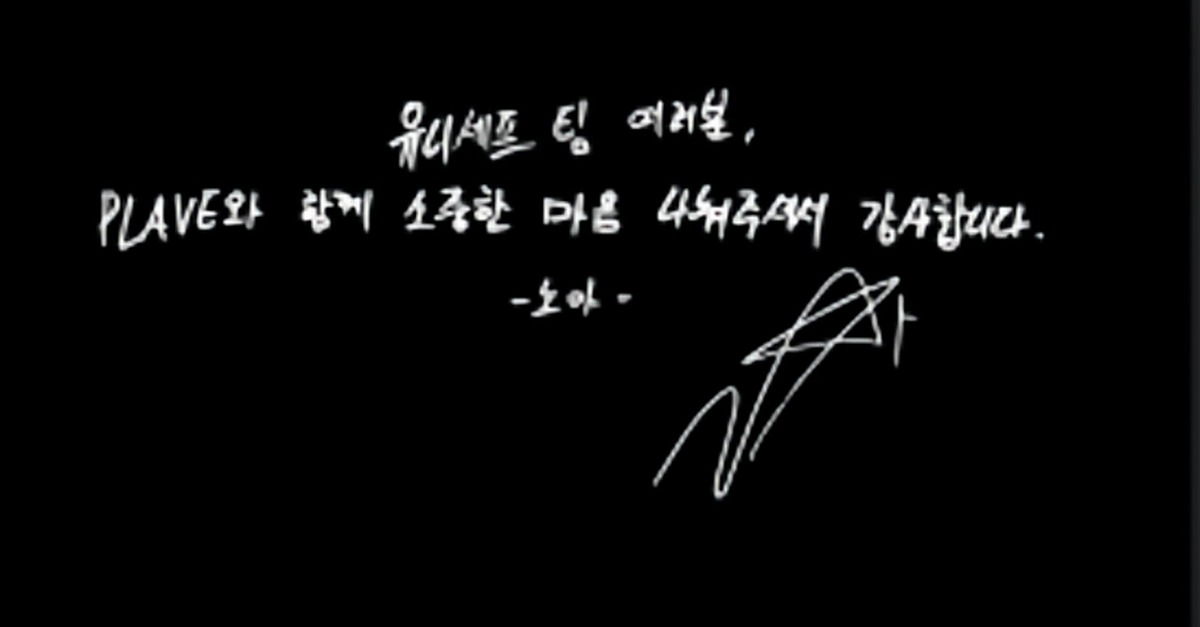 유니세프 팀 여러분,
PLAVE와 함께 소중한 마음 나눠주셔서 감사합니다.
-노아-